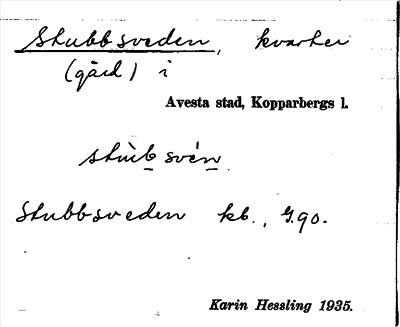 Stubbsveden, kvarter
(gård) i
Avesta stad, Kopparbergs l.
stùb svén
Stubbsveden kb., G.90.
Karin Hessling 1935.